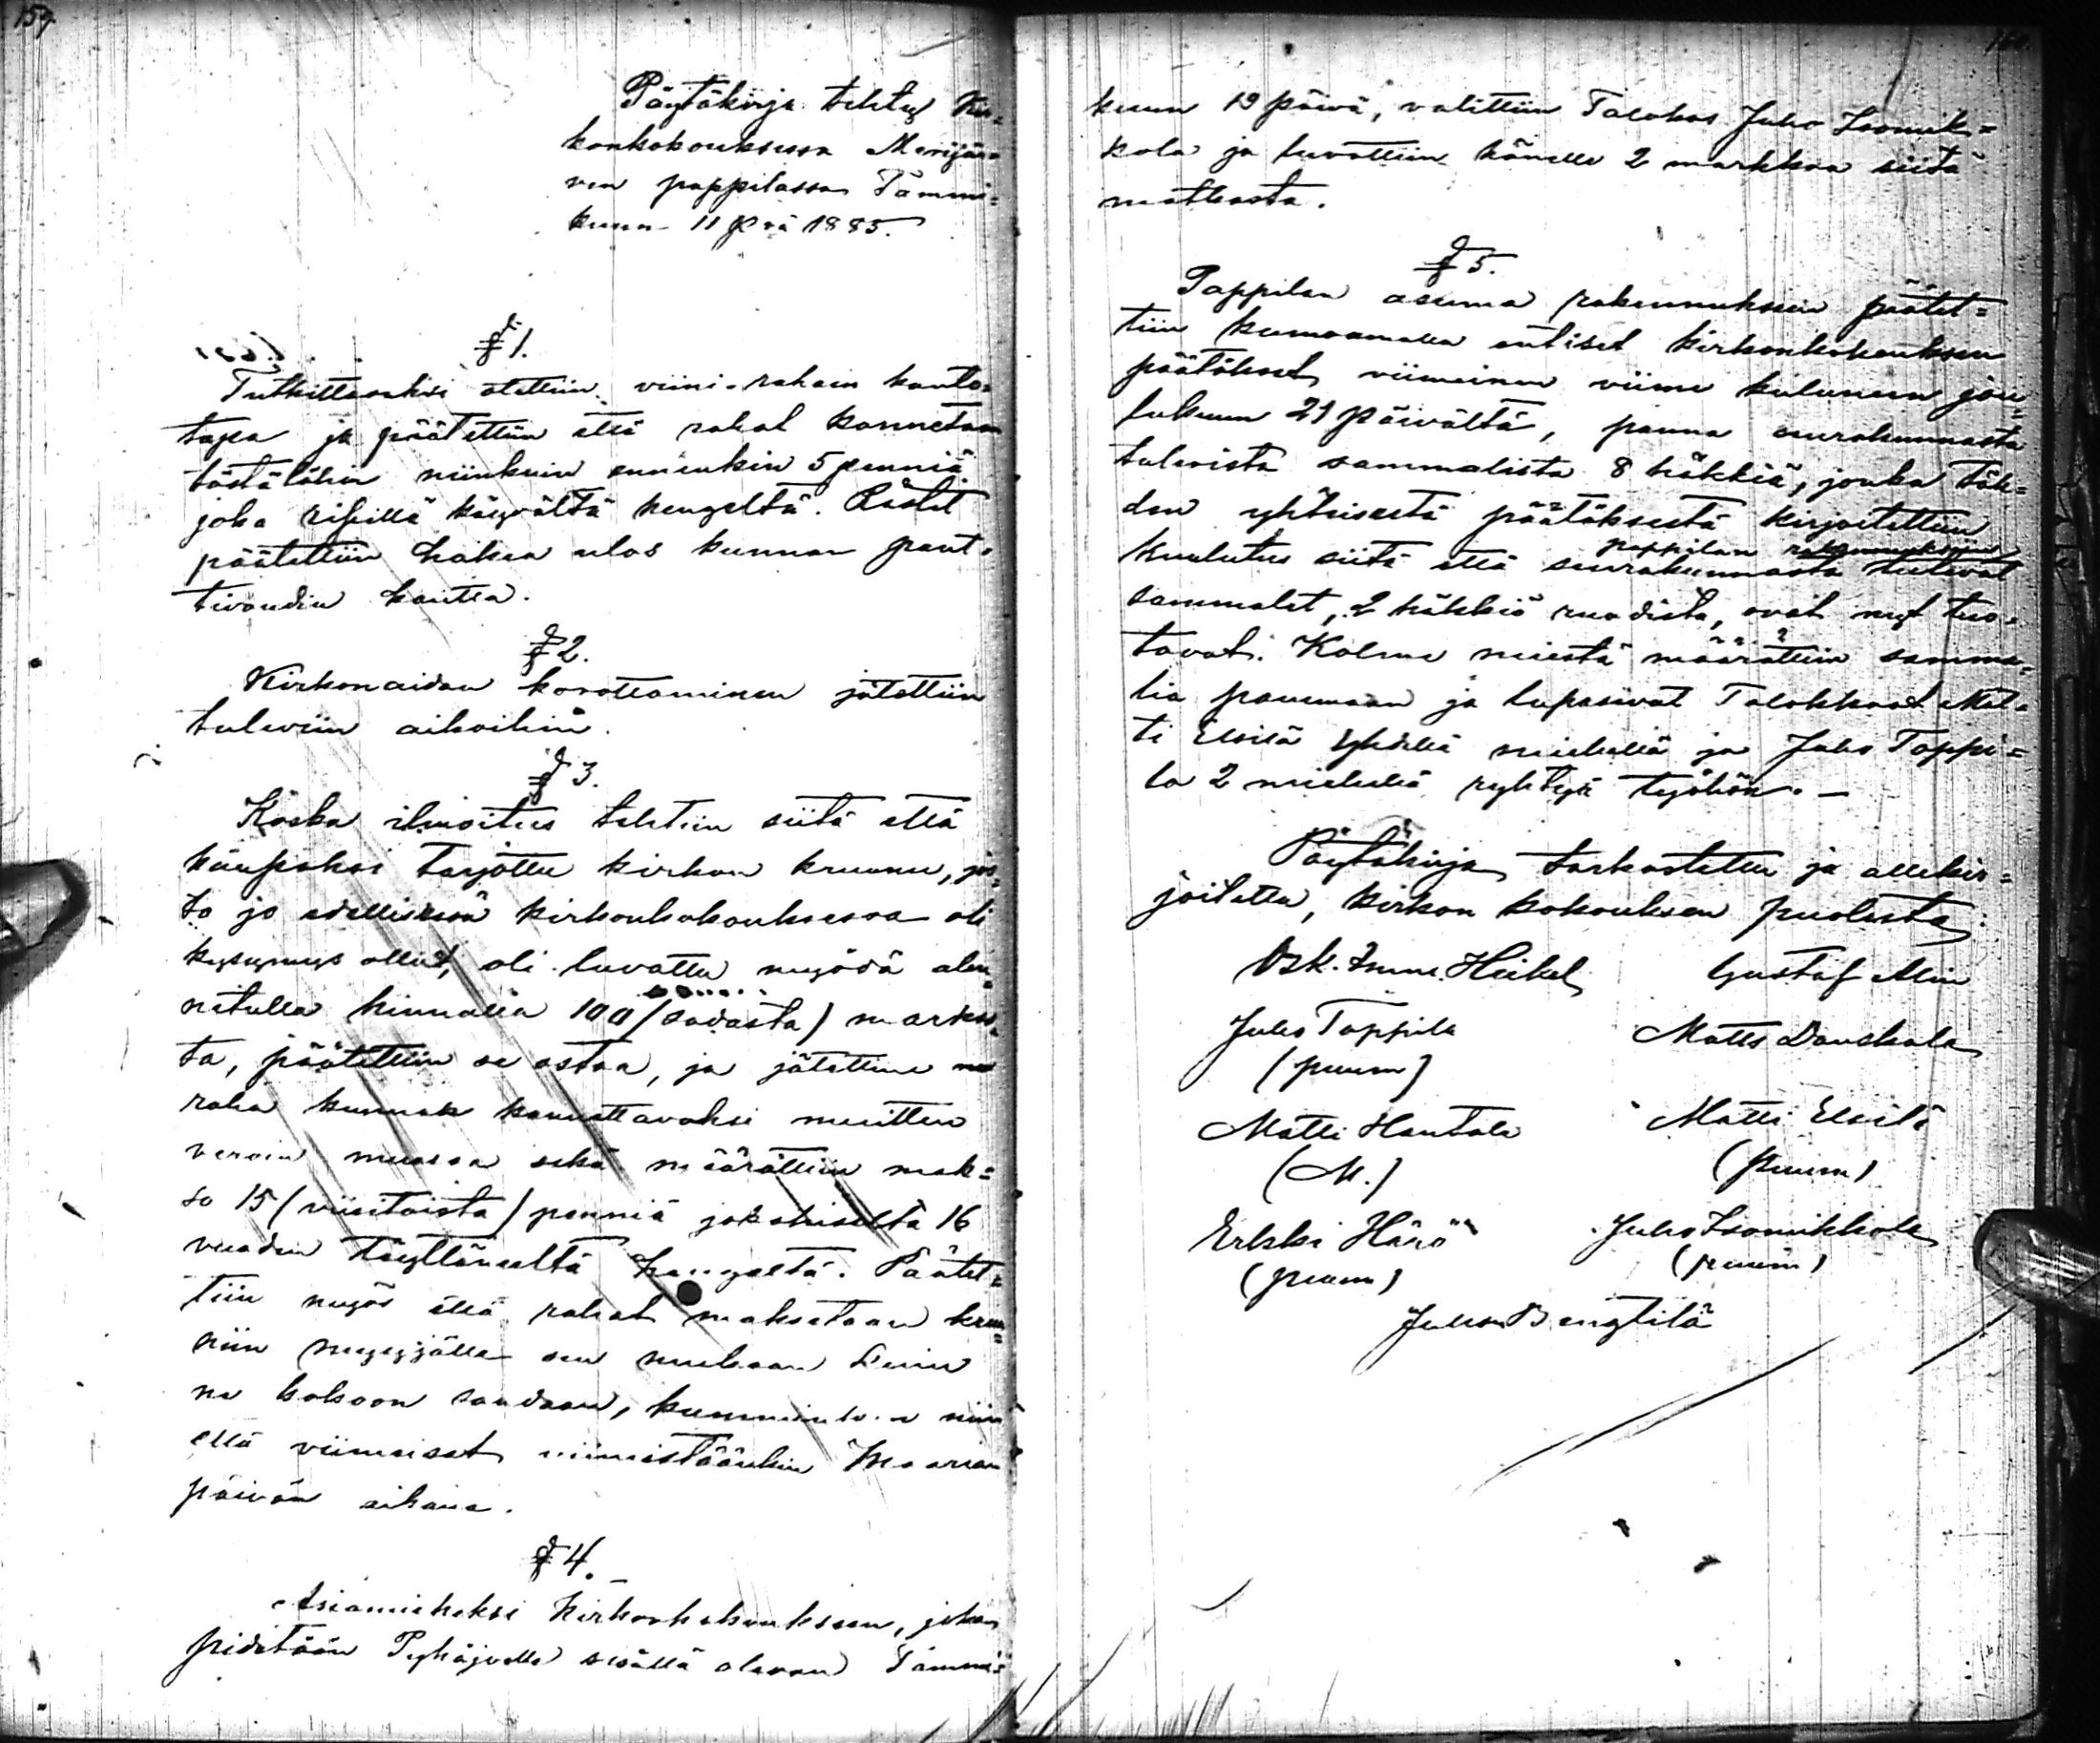 159
Pöytäkirja tehty Kir=
konkokouksessa Merijär=
ven pappilassa Tammi=
kuun 11 p:vä 1885.
§ 1.
Tutkittavaksi otettiin viini-rahain kanto-
tapa ja päätettiin että rahat kannetaan
tästälähin niinkuin ennenkin 5 penniä
joka ripillä käyvältä hengeltä. Rästit
päätettiin hakea ulos kunnan
kautta.
§ 2.
Kirkonaidan korottaminen jätettiin
tuleviin aikoihin.
§ 3.
Koska ilmoitus tehtiin siitä että
kaupaksi tarjottu kirkon kruunu, jos=
ta jo edellisessä kirkonkokouksessa oli
kysymys ollut, oli luvattu myödä alen=
netulla hinnalla 100 (sadasta) markas=
ta, päätettiin se ostaa, ja jätettiin ne
raha kunnan kannettavaksi muitten
veroin muassa sekä määrättiin mak=
so 15 (viisitoista) penniä jokahiselta 16
vuoden täyttäneeltä hengeltä. Päätet=
tiin myös että rahat maksetaan kruu=
nun myyjälle sen mukaan kuin
ne kokoon saadaan, kumminkin niin
että viimeiset viimeistäänkin Maarian
päivän aikana.
§ 4.
Asiamieheksi Kirkonkokoukseen, joka
pidetään Pyhäjoella sisällä olevan Tammi=
160
kuun 19 päivä, valittiin Talokas Juho Isomik=
kola ja luvattiin hänelle 2 markkaa siitä
matkasta.
§ 5.
Pappilan asuma rakennuksein päätet=
tiin kumoamalla entiset kirkonkokouksen
päätökset, viimeinen viime kuluneen jou=
lukuun 21 päivältä, panna seurakunnasta
tulevista sammalista 8 häkkiä, jonka täh=
den yhteisestä päätöksestä kirjoitettiin
pappilan rakennukseen
kuulutus siitä että seurakunnasta tulevat
sammalet, 2 häkkiä ruodista, ovat nyt tuo-
tavat. Kolme miestä määrättiin samma=
lia panemaan ja lupasivat Talokkaat Mat-
ti Eksilä yhdellä miehellä ja Juho Toppi=
la 2 miehellä ryhtyä työhön. —
Pöytäkirja tarkastettu ja allekir=
joitettu, kirkon kokouksen puolesta:
Osk. Imm. Heikel Gustaf Alin
Juho Toppila Matts
(puum) 
Matti Hantala Matti Eksilä
(M.) (puum)
Erkki Härö Juho Isomikkola
(puum) (puum)
Juho Bengtilä